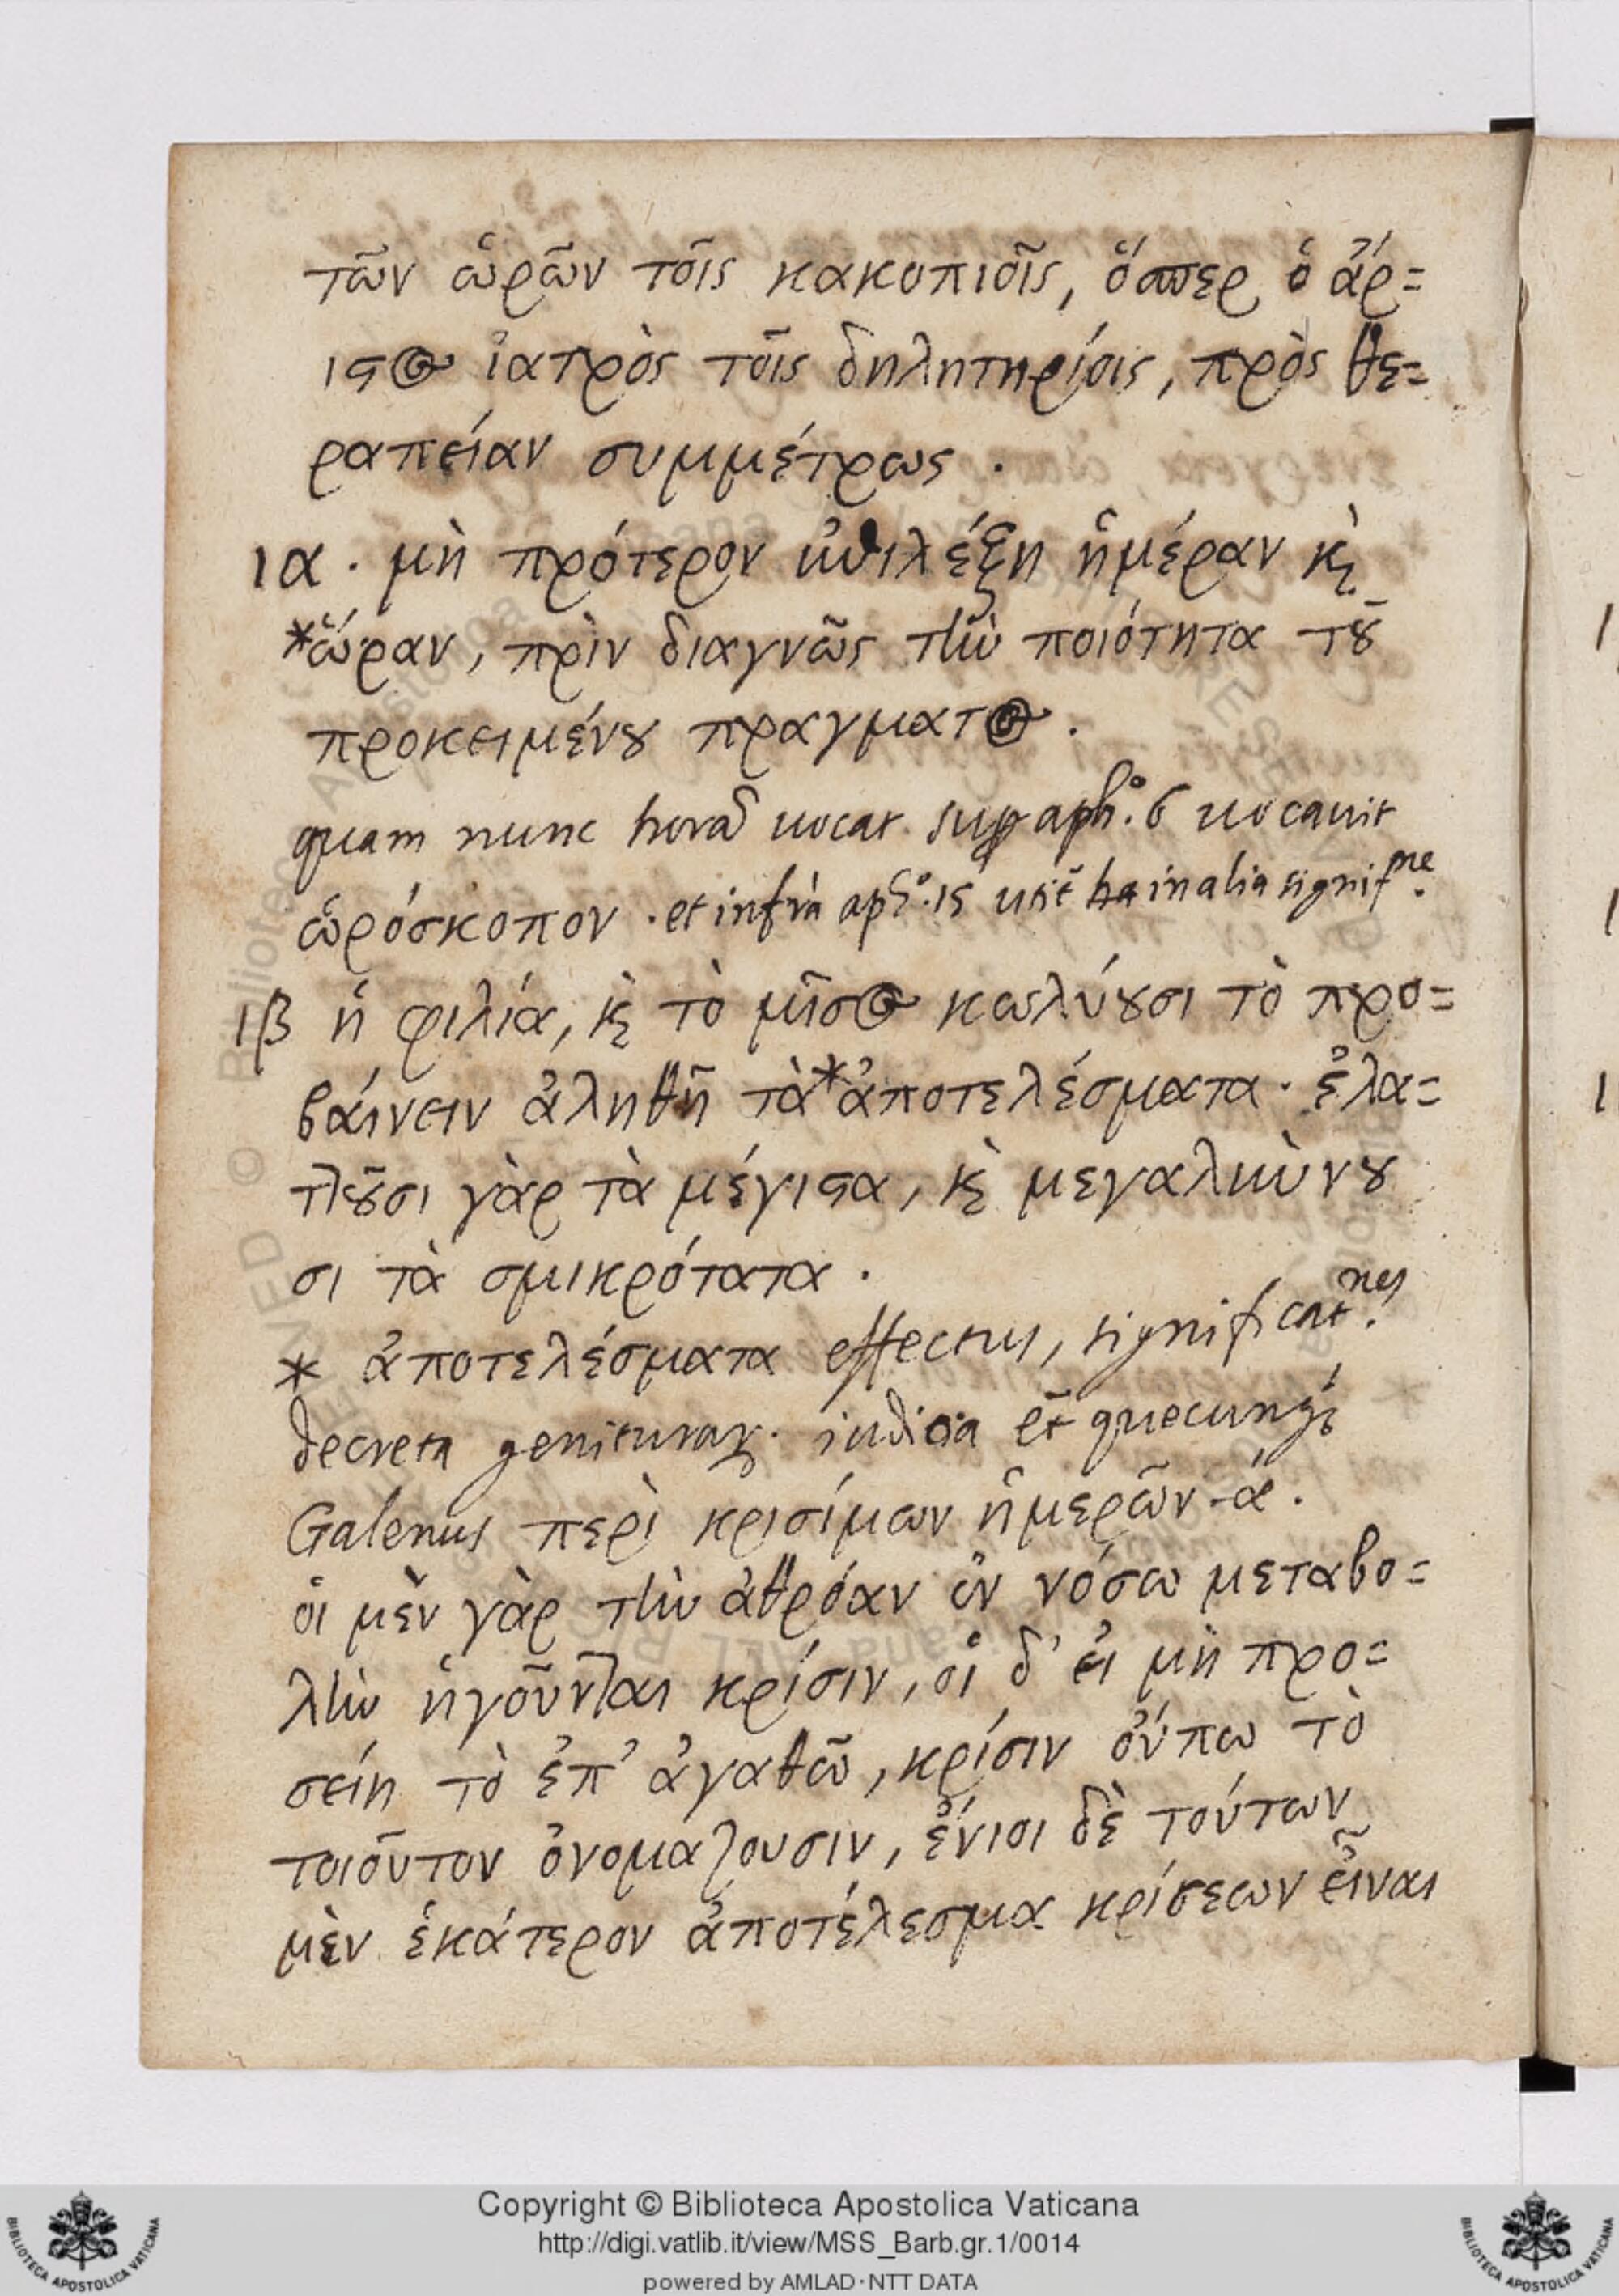 τῶν ὡρῶν τοῖς κακοπιοῖς, ὅσπερ ὁ ἄρ=
ιϛος ἰατρὸς τοῖς δηλητηρίοις, πρὸς θε=
ραπείαν συμμέτρως .
ια . μὴ πρότερον ἐπιλέξη ἡμέραν ϗ
*ὥραν, πρὶν διαγνῶς τὴν ποιότητα τȣ͂
προκειμένȣ πραγματος .
quam nunc horã uocat. aph.º 6 uocauit
ὡρόσκοπον . et infrà aph.º 15 in alia signif.ne
ιβ ἡ φιλία, ϗ τὸ μῖσος κωλύȣσι τὸ προ=
βάινειν ἀληθῆ τὰ *ἀποτελέσματα . ἐλα=
τȣ͂σι γὰρ τὰ μέγιϛα, ϗ μεγαλύνȣ
σι τὰ σμικρότατα .
* ἀποτελέσματα effectus, significat.nes
decreta geniturarꝝ. iudicia et̃ quecunqꝫ
Galenus περὶ κρισίμων ἡμερῶν ά.
ὁι μὲν γὰρ τὴν ἀθρόαν ἐν νόσω μεταβο=
λὴν ἡγοῦνται κρίσιν, ὁι δ' ἐι μὴ προ=
σείη τὸ ἐπ' ἀγαθῶ, κρίσιν ὄυπω τὸ
τοιοῦτον ὀνομαζουσιν, ἔνιοι δὲ τούτων
μὲν ἑκάτερον ἀποτέλεσμα κρίσεων εἶναι
Copyright © Biblioteca Apostolica Vaticana
http://digi.vatlib.it/view/MSS_Barb.gr.1/0014
powered by AMLAD·NTT DATA
BIBLIOTECA APOSTOLICA VATICANA
BIBLIOTECA APOSTOLICA VATICANA